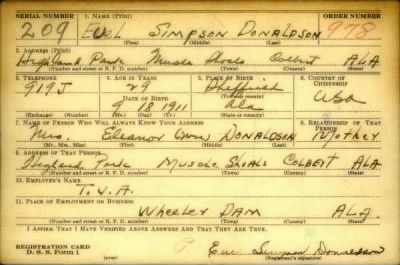 SERIAL NUMBER 1. NAME (Print) ORDER NUMBER
209 SIMPSON DONALDSON 978
(First) (Middle) (Last)
2. ADDRESS (Print)
Highland Park Muscle Shoals Colbert ALA
(Number and street or R. F. D. number) (Town) (County) (State)
3. TELEPHONE 4. AGE IN YEARS 5. PLACE OF BIRTH 6. COUNTRY OF CITIZENSHIP
919J 29 Sheffield
DATE OF BIRTH (Town or county)
9 18 1911 Ala USA
(Exchange) (Number) (Mo.) (Day) (Yr.) (State or country)
7. NAME OF PERSON WHO WILL ALWAYS KNOW YOUR ADDRESS RELATIONSHIP OF THAT PERSON
Mrs. Eleanor DONALDSON Mother
(Mr., Mrs., Miss) (First) (Middle) (Last)
9. ADDRESS OF THAT PERSON
Highland Park MUSCLE SHOALS COLBERT ALA
(Number and street or R. F. D. number) (Town) (County) (State)
10. EMPLOYER'S NAME
T.V.A.
11. PLACE OF EMPLOYMENT OR BUSINESS
WHEELER DAM ALA.
(Number and street or R. F. D. number) (Town) (County) (State)
I AFFIRM THAT I HAVE VERIFIED ABOVE ANSWERS AND THAT THEY ARE TRUE.
REGISTRATION CARD
D. S. S. Form 1 Simpson Donaldson
(Registrant's signature)